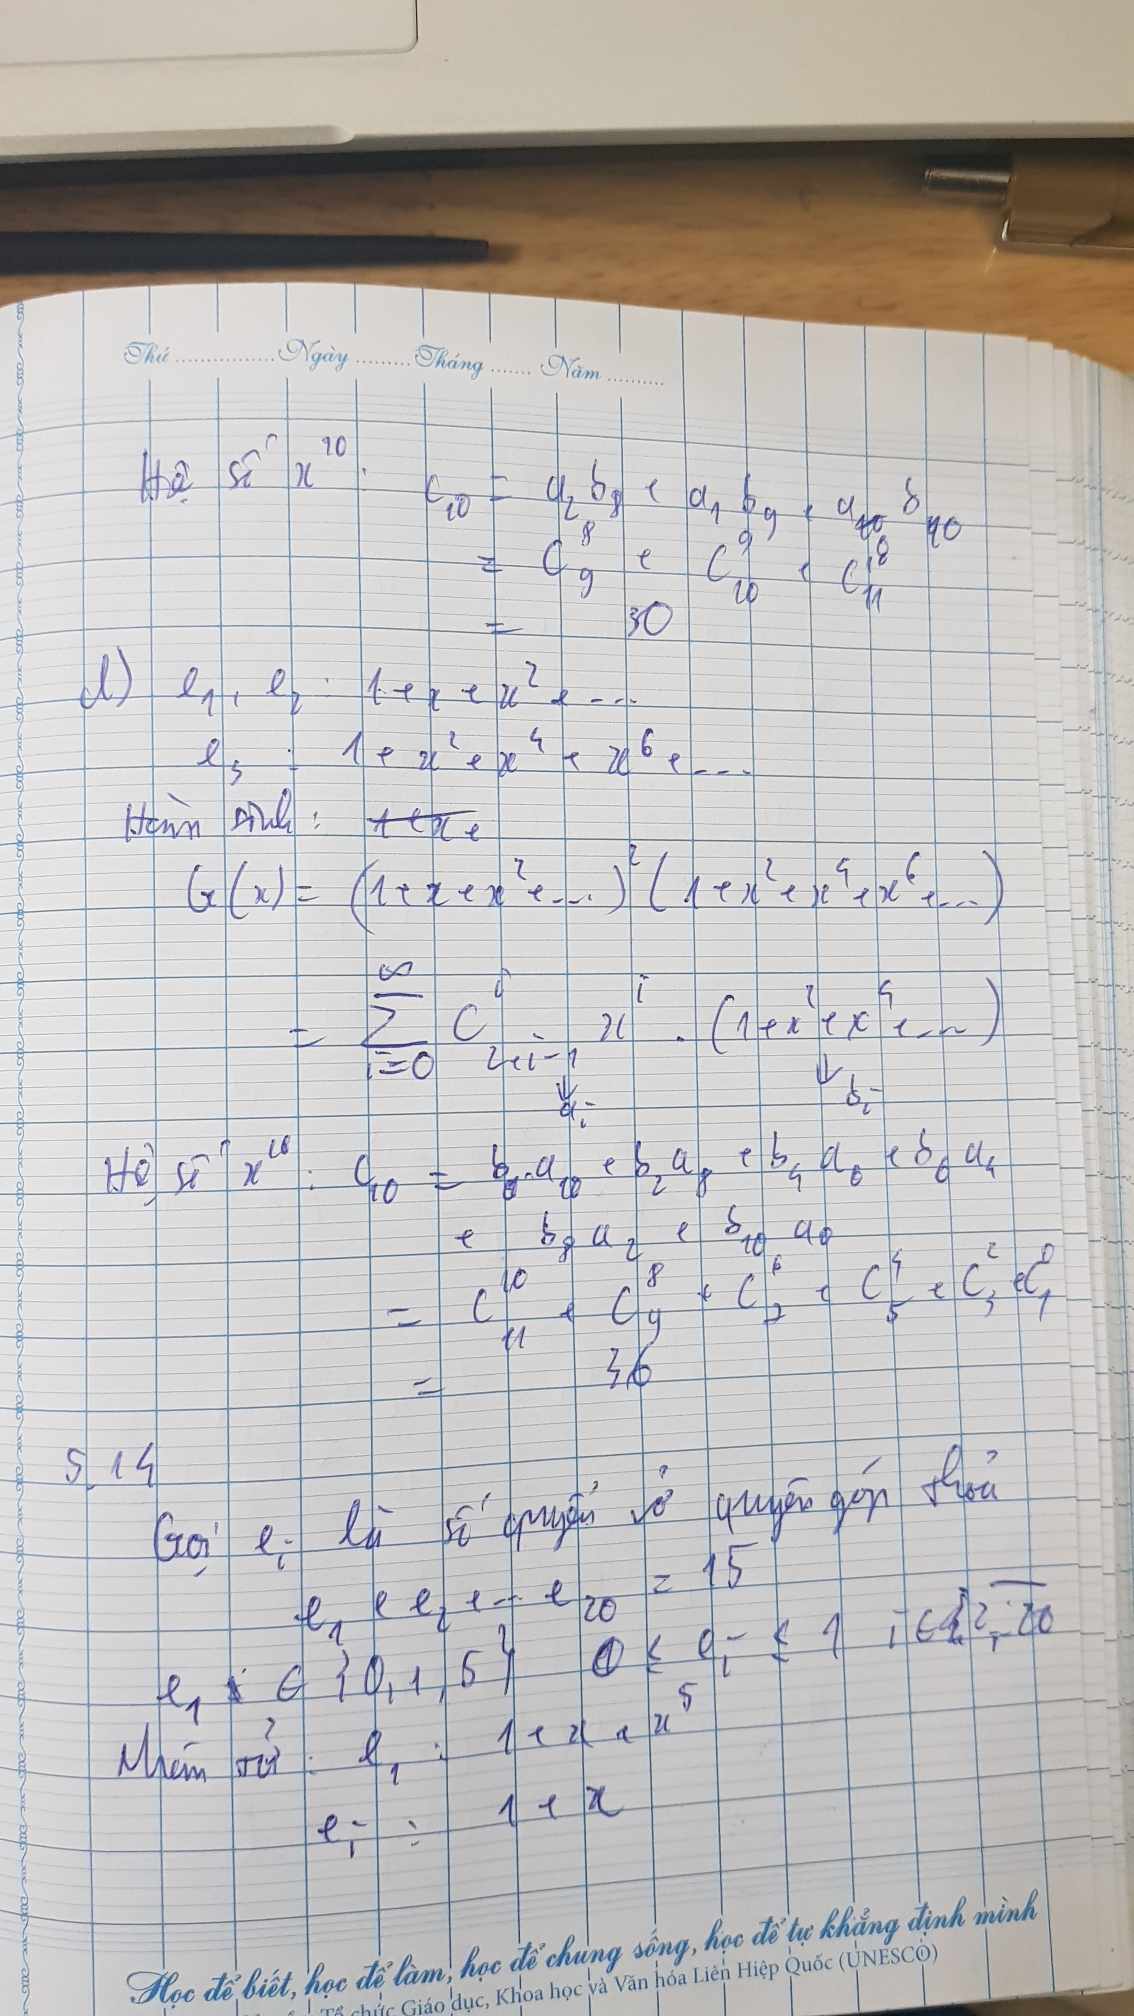 Thứ ................. Ngày .......... Tháng ....... Năm ..........
Hệ số x^10 : c_10 = a_2 b_8 + a_1 b_9 + a_0 b_10
= C_9^8 + C_10^9 + C_11^10
= 30
d) e_1, e_2 : 1 + x + x^2 + ...
e_3 : 1 + x^2 + x^4 + x^6 + ...
Hàm sinh :
G(x) = (1 + x + x^2 + ...)^2 (1 + x^2 + x^4 + x^6 + ...)
= ∑_{i=0}^{∞} C_{2+i-1}^i x^i . (1 + x^2 + x^4 + ...)
↓ a_i ↓ b_i
Hệ số x^10 : c_10 = b_0 . a_10 + b_2 a_8 + b_4 a_6 + b_6 a_4
+ b_8 a_2 + b_10 a_0
= C_11^10 + C_9^8 + C_7^6 + C_5^4 + C_3^2 + C_1^0
= 36
5.14
Gọi e_i là số quyển vở quyên góp thỏa
e_1 + e_2 + ... e_20 = 15
e_1 ∈ {0, 1, 5} 0 ≤ e_i ≤ 1 i ∈ 2, 20
: e_1 : 1 + x + x^5
e_i : 1 + x
Học để biết, học để làm, học để chung sống, học để tự khẳng định mình
Tổ chức Giáo dục, Khoa học và Văn hóa Liên Hiệp Quốc (UNESCO)